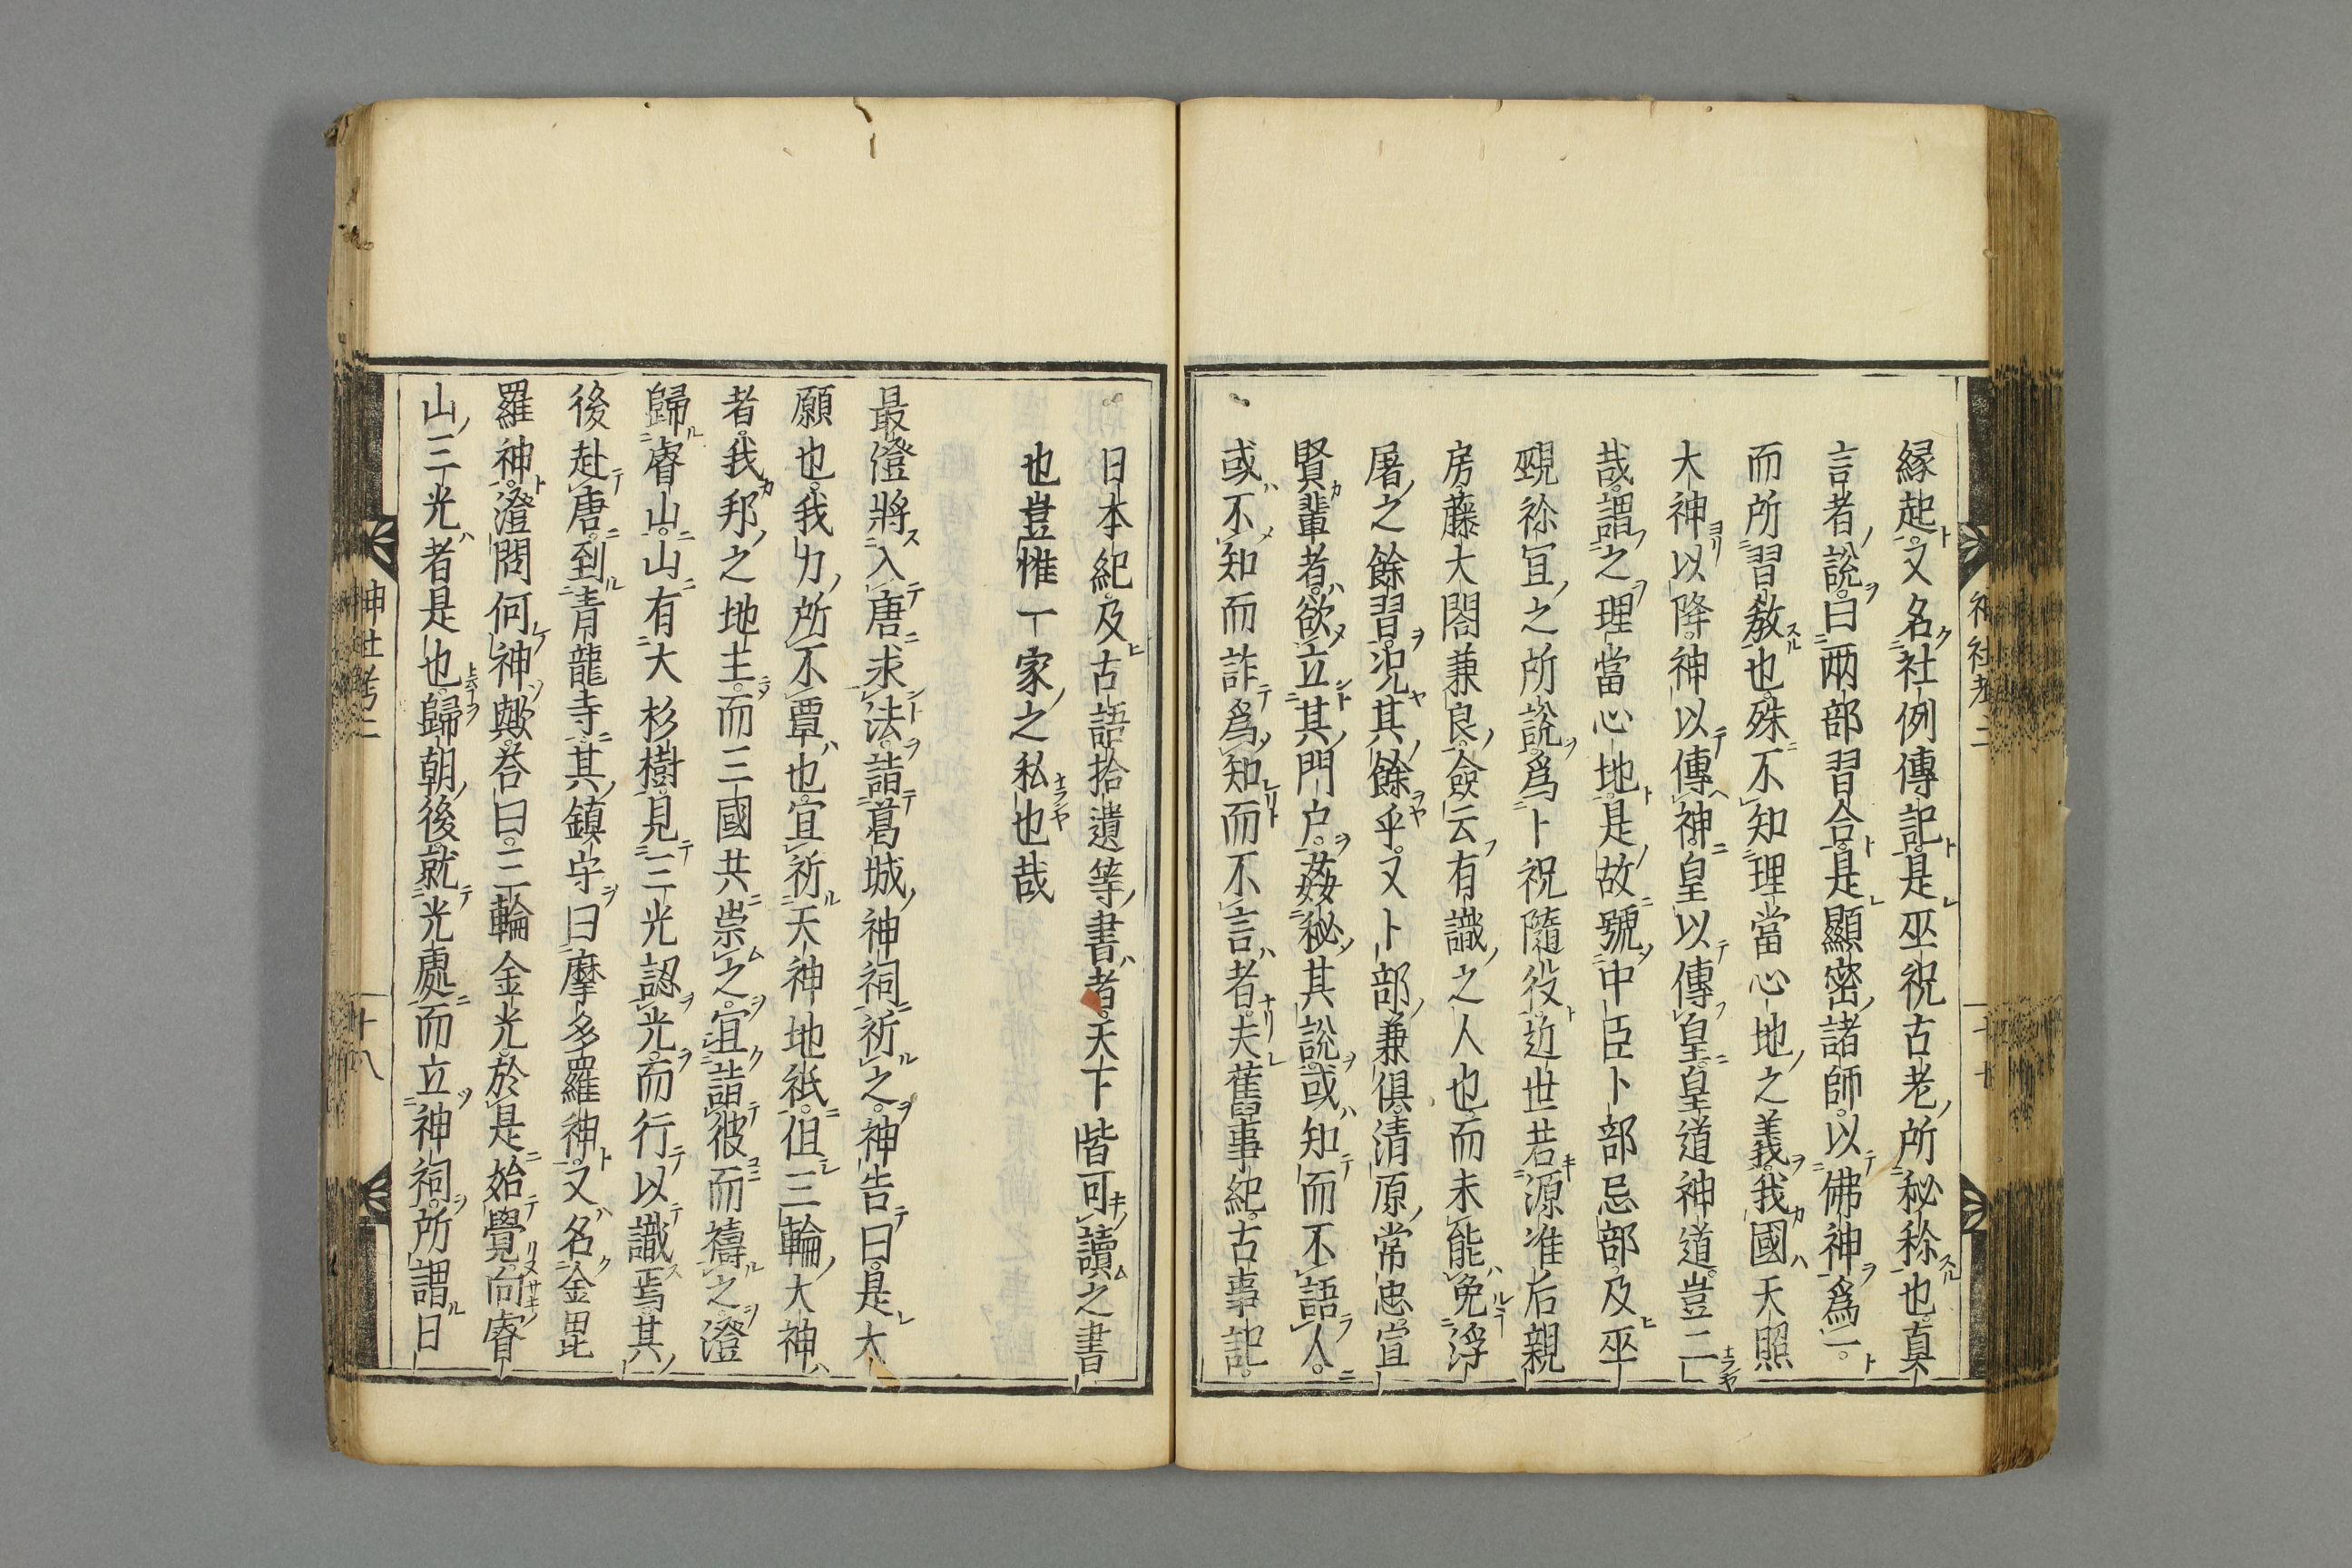 縁起又名社例傳記是巫祝古老所秘称也真
言者説曰兩部習合是顯密諸師以佛神爲一
而所習教也殊不知理當心地之義我國天照
大神以降神以傳神皇以傳皇皇道神道豈二
哉謂之理當心地是故號中臣卜部忌部及巫
覡祢宜之所說爲卜祝隨役近世若源准后親
房藤大閤兼良僉云有識之人也而未能免浮
屠之餘習況其餘乎又卜部兼俱清原常忠宣
賢輩者欲立其門戸姦秘其說或知而不語人
或不知而詐爲知而不言者夫舊事紀古事記
神社考二
十七
日本紀及古語拾遺等書者天下皆可讀之書
也豈惟一家之私也哉
最澄將入唐求法詣葛城神祠祈之神告曰是大
願也我力所不覃也宜祈天神地祇但三輪大神
者我邦之地主而三國共崇之宜詣彼而禱之澄
歸睿山山有大杉樹見三光認光而行以識焉其
後赴唐到青龍寺其鎮守曰摩多羅神又名金毘
羅神澄問何神歟答曰三輪金光於是始覺向睿
山三光者是也歸朝後就光處而立神祠所謂日
神社考二
十八